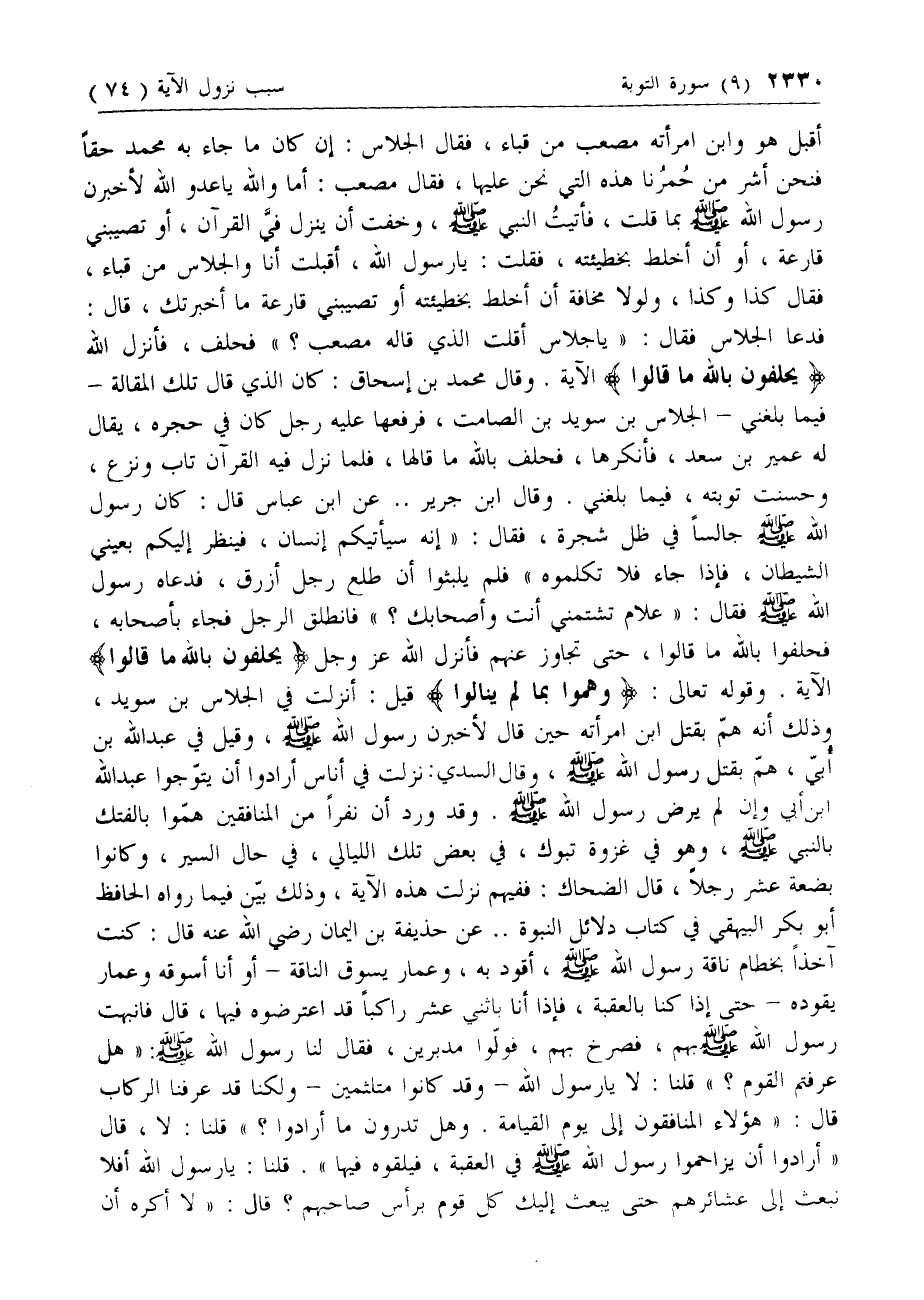 ٢٣٣٠ (٩) سورة التوبة سبب نزول الآية ( ٧٤ )
أقبل هو وابن امرأته مصعب من قباء ، فقال الجلاس : إن كان ما جاء به محمد حقاً
فنحن أشر من حُمرُنا هذه التي نحن عليها ، فقال مصعب : أما والله ياعدو الله لأخبرن
رسول الله ﷺ بما قلت ، فأتيتُ النبي ﷺ ، وخفت أن ينزل فيَّ القرآن ، أو تصيبني
قارعة ، أو أن أخلط بخطيئته ، فقلت : يارسول الله ، أقبلت أنا والجلاس من قباء ،
فقال كذا وكذا ، ولولا مخافة أن أخلط بخطيئته أو تصيبني قارعة ما أخبرتك ، قال :
فدعا الجلاس فقال : « ياجلاس أقلت الذي قاله مصعب ؟ » فحلف ، فأنزل الله
﴿ يحلفون بالله ما قالوا ﴾ الآية . وقال محمد بن إسحاق : كان الذي قال تلك المقالة –
فيما بلغني – الجلاس بن سويد بن الصامت ، فرفعها عليه رجل كان في حجره ، يقال
له عمير بن سعد ، فأنكرها ، فحلف بالله ما قالها ، فلما نزل فيه القرآن تاب ونزع ،
وحسنت توبته ، فيما بلغني . وقال ابن جرير .. عن ابن عباس قال : كان رسول
الله ﷺ جالساً في ظل شجرة ، فقال : « إنه سيأتيكم إنسان ، فينظر إليكم بعيني
الشيطان ، فإذا جاء فلا تكلموه » فلم يلبثوا أن طلع رجل أزرق ، فدعاه رسول
الله ﷺ فقال : « علام تشتمني أنت وأصحابك ؟ » فانطلق الرجل فجاء بأصحابه ،
فحلفوا بالله ما قالوا ، حتى تجاوز عنهم فأنزل الله عز وجل ﴿ يحلفون بالله ما قالوا ﴾
الآية . وقوله تعالى : ﴿ وهموا بما لم ينالوا ﴾ قيل : أنزلت في الجلاس بن سويد ،
وذلك أنه همّ بقتل ابن امرأته حين قال لأخبرن رسول الله ﷺ ، وقيل في عبدالله بن
أُبيّ ، همّ بقتل رسول الله ﷺ ، وقال السدي: نزلت في أناس أرادوا أن يتوّجوا عبدالله
ابن أبي وإن لم يرض رسول الله ﷺ . وقد ورد أن نفراً من المنافقين همّوا بالفتك
بالنبي ﷺ ، وهو في غزوة تبوك ، في بعض تلك الليالي ، في حال السير ، وكانوا
بضعة عشر رجلاً ، قال الضحاك : ففيهم نزلت هذه الآية ، وذلك بيّن فيما رواه الحافظ
أبو بكر البيهقي في كتاب دلائل النبوة .. عن حذيفة بن اليمان رضي الله عنه قال : كنت
آخذاً بخطام ناقة رسول الله ﷺ ، أقود به ، وعمار يسوق الناقة – أو أنا أسوقه وعمار
يقوده – حتى إذا كنا بالعقبة ، فإذا أنا باثني عشر راكباً قد اعترضوه فيها ، قال فانبهت
رسول الله ﷺ بهم ، فصرخ بهم ، فولّوا مدبرين ، فقال لنا رسول الله ﷺ: « هل
عرفتم القوم ؟ » قلنا : لا يارسول الله – وقد كانوا متلثمين – ولكنا قد عرفنا الركاب
قال : « هؤلاء المنافقون إلى يوم القيامة . وهل تدرون ما أرادوا ؟ » قلنا : لا ، قال
« أرادوا أن يزاحموا رسول الله ﷺ في العقبة ، فيلقوه فيها » . قلنا : يارسول الله أفلا
نبعث إلى عشائرهم حتى يبعث إليك كل قوم برأس صاحبهم ؟ قال : « لا أكره أن